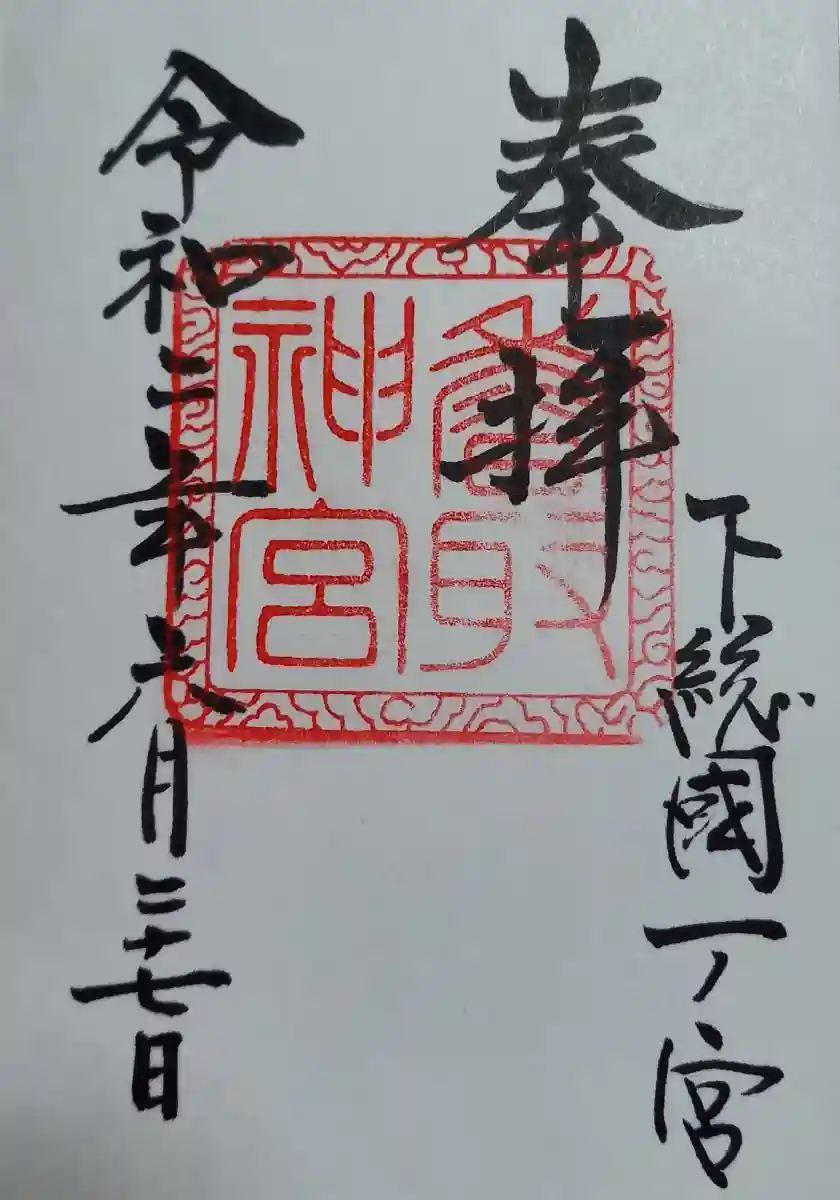 奉拝
下総國一ノ宮
香取
神宮
令和二年六月二十七日